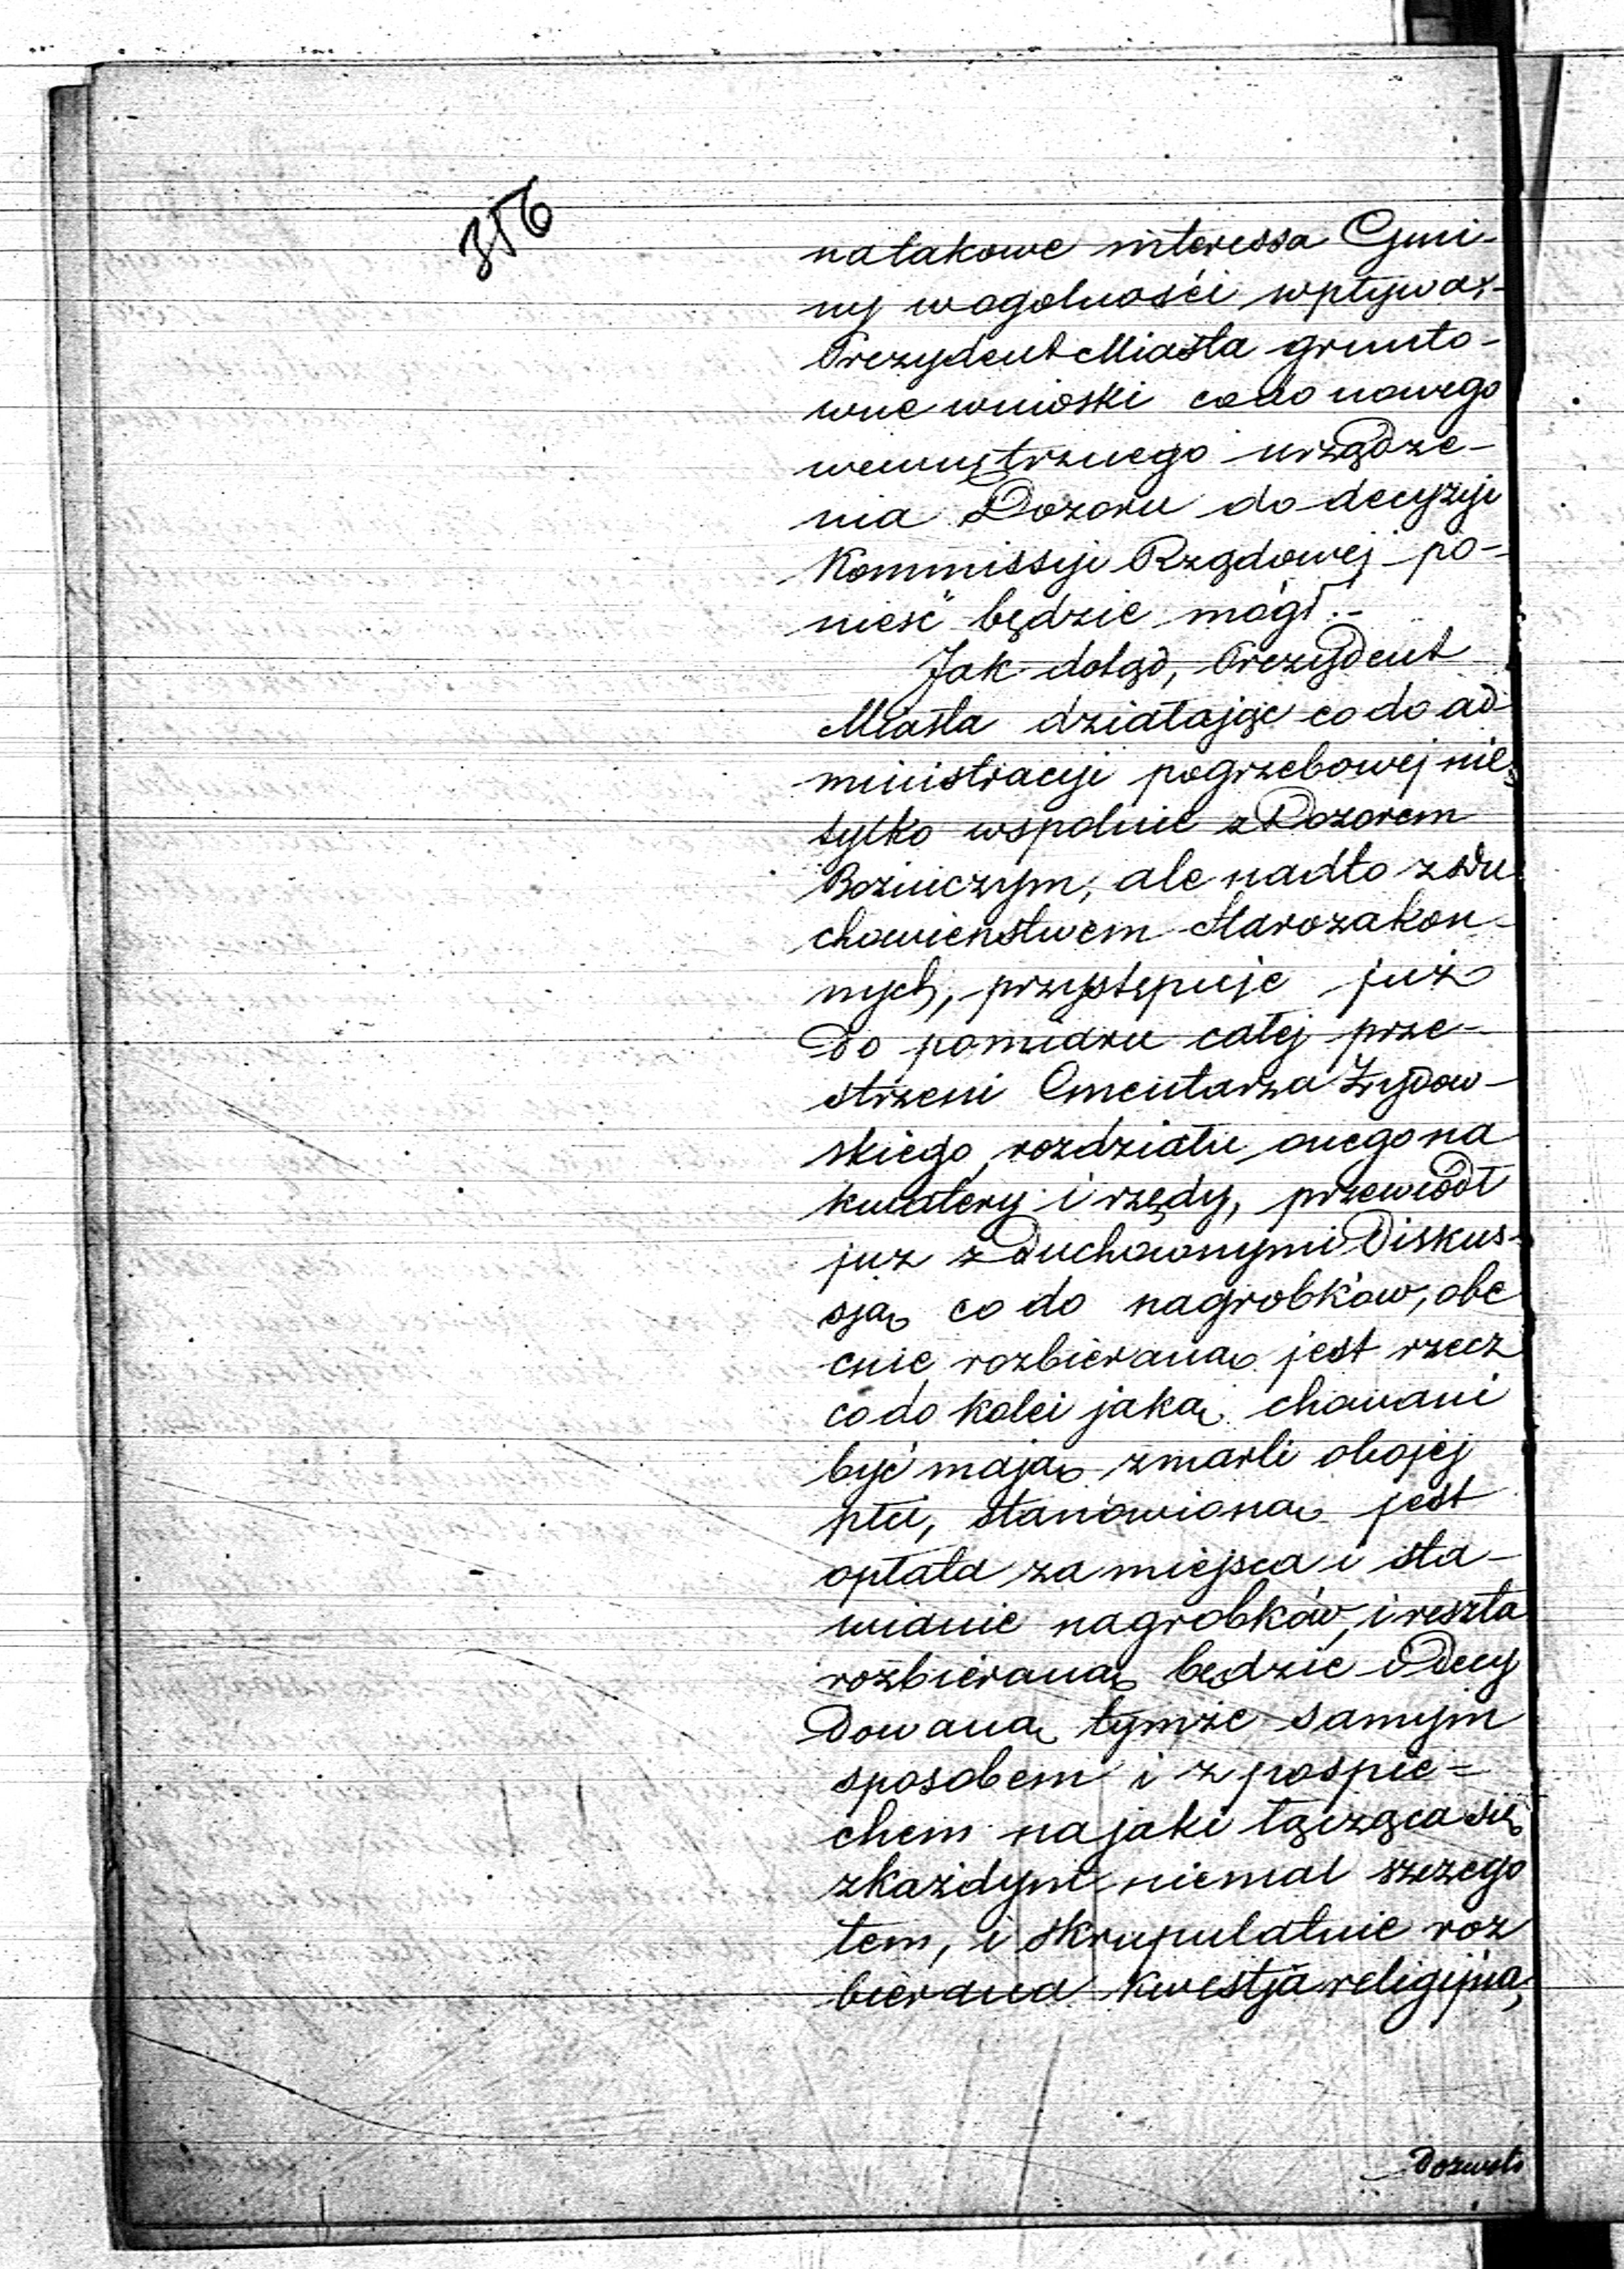 356
na takowe interessa Gmi-
ny wogolności wpływa,-
Prezydent Miasta grunto-
wne wnioski co do nowego
wewnętrznego urządze-
nia Dozoru do decyzyi
Kommissyi Rządowej po-
nieść będzie mógł.-
Jak dotąd, Prezydent
Miasta działając co do ad
ministracyi pogrzebowej nie
tylko wspolnie z Dozorem
Bozniczym, ale nadto z Du
chowieństwem Starozakon-
nych, przystępuje już
do pomiaru całej prze-
strzeni Cmentarza Żydow-
skiego, rozdziału onego na
kwatery i rzędy, przewiódł
juz z Duchownymi Diskus-
sją co do nagrobków, obe
cnie rozbieraną jest rzecz
co do kolei jaką chowani
być mają zmarli obojej
płci, stanowioną jest
opłata za miejsca i sta-
wianie nagrobków, i reszta
rozbieraną będzie i Decy
dowaną tymże samym
sposobem i z pospie-
chem na jaki łącząca się
z każdym niemal szczegó
łem, i skrupulatnie roz
bierana kwestja religijna,
Dozwoli